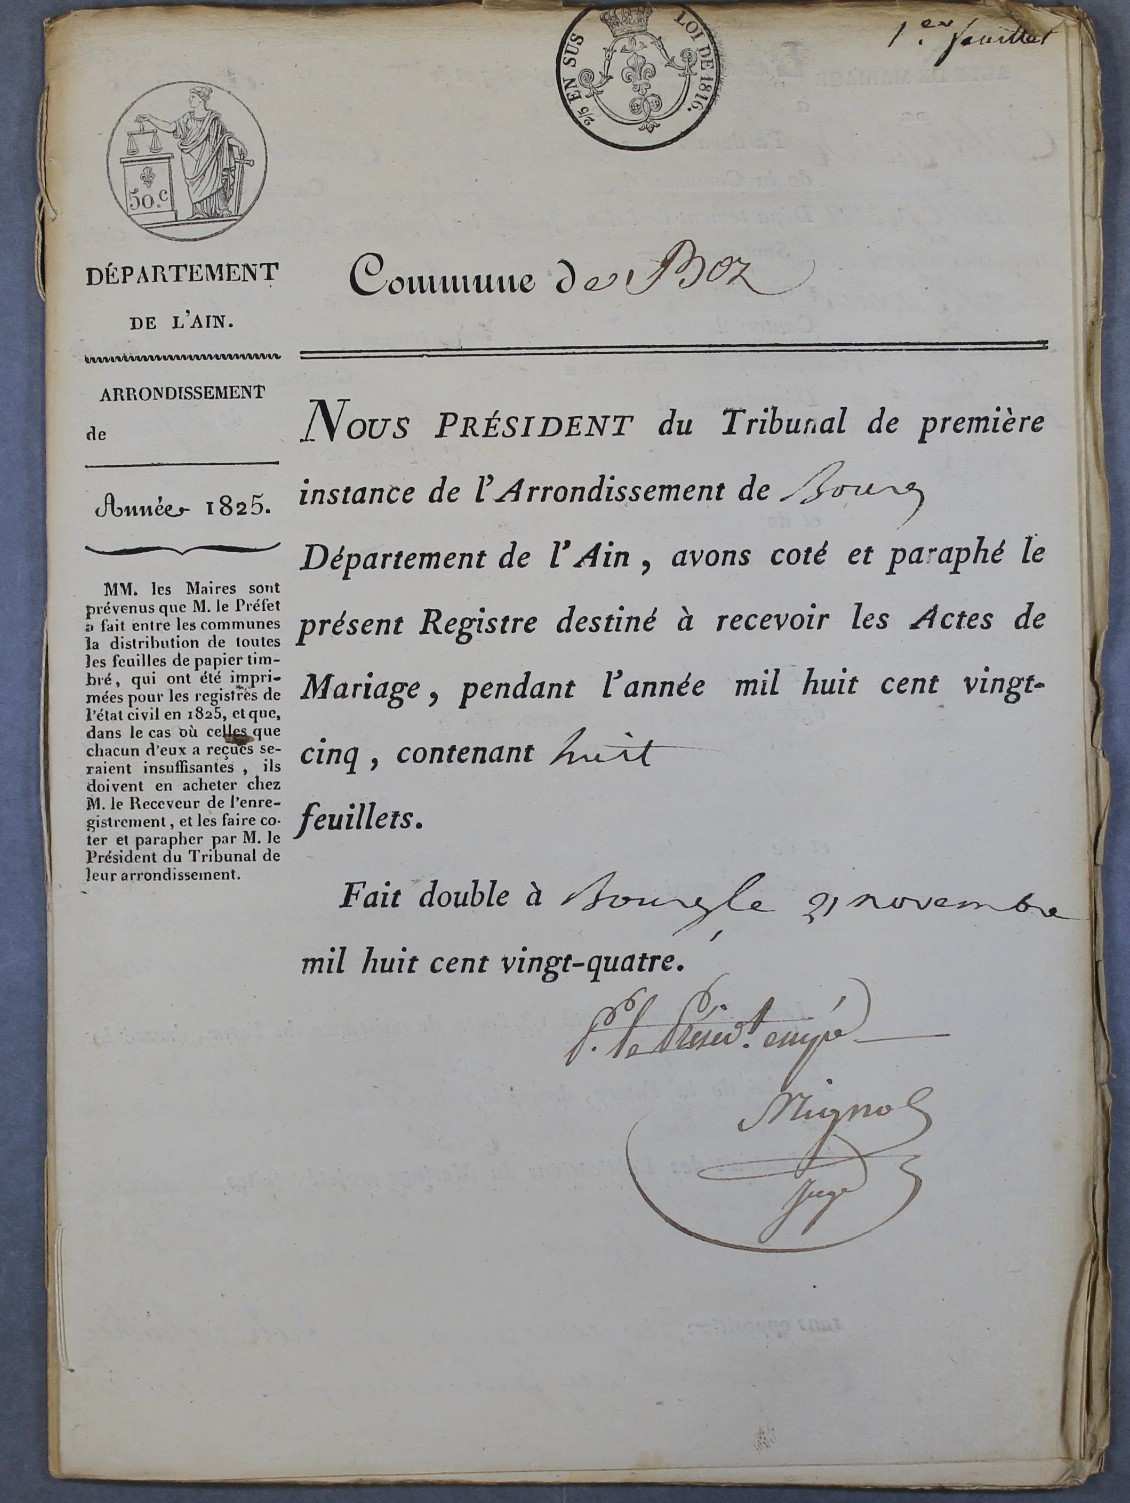 1.er feuillet
2/5 EN SUS
LOI DE 1816.
50.c
DÉPARTEMENT
DE L'AIN.
Commune de Boz
ARRONDISSEMENT
de
Année 1825.
MM. les Maires sont
prévenus que M. le Préfet
a fait entre les communes
la distribution de toutes
les feuilles de papier tim-
bré, qui ont été impri-
mées pour les registres de
l'état civil en 1825, et que,
dans le cas où celles que
chacun d'eux a reçues se-
raient insuffisantes, ils
doivent en acheter chez
M. le Receveur de l'enre-
gistrement, et les faire co-
ter et parapher par M. le
Président du Tribunal de
leur arrondissement.
NOUS PRÉSIDENT du Tribunal de première
instance de l'Arrondissement de Bourg
Département de l'Ain, avons coté et paraphé le
présent Registre destiné à recevoir les Actes de
Mariage, pendant l'année mil huit cent vingt-
cinq, contenant huit
feuillets.
Fait double à Bourg le 21 novembre
mil huit cent vingt-quatre.
P. le Présid.t empé
Mignol
Juge